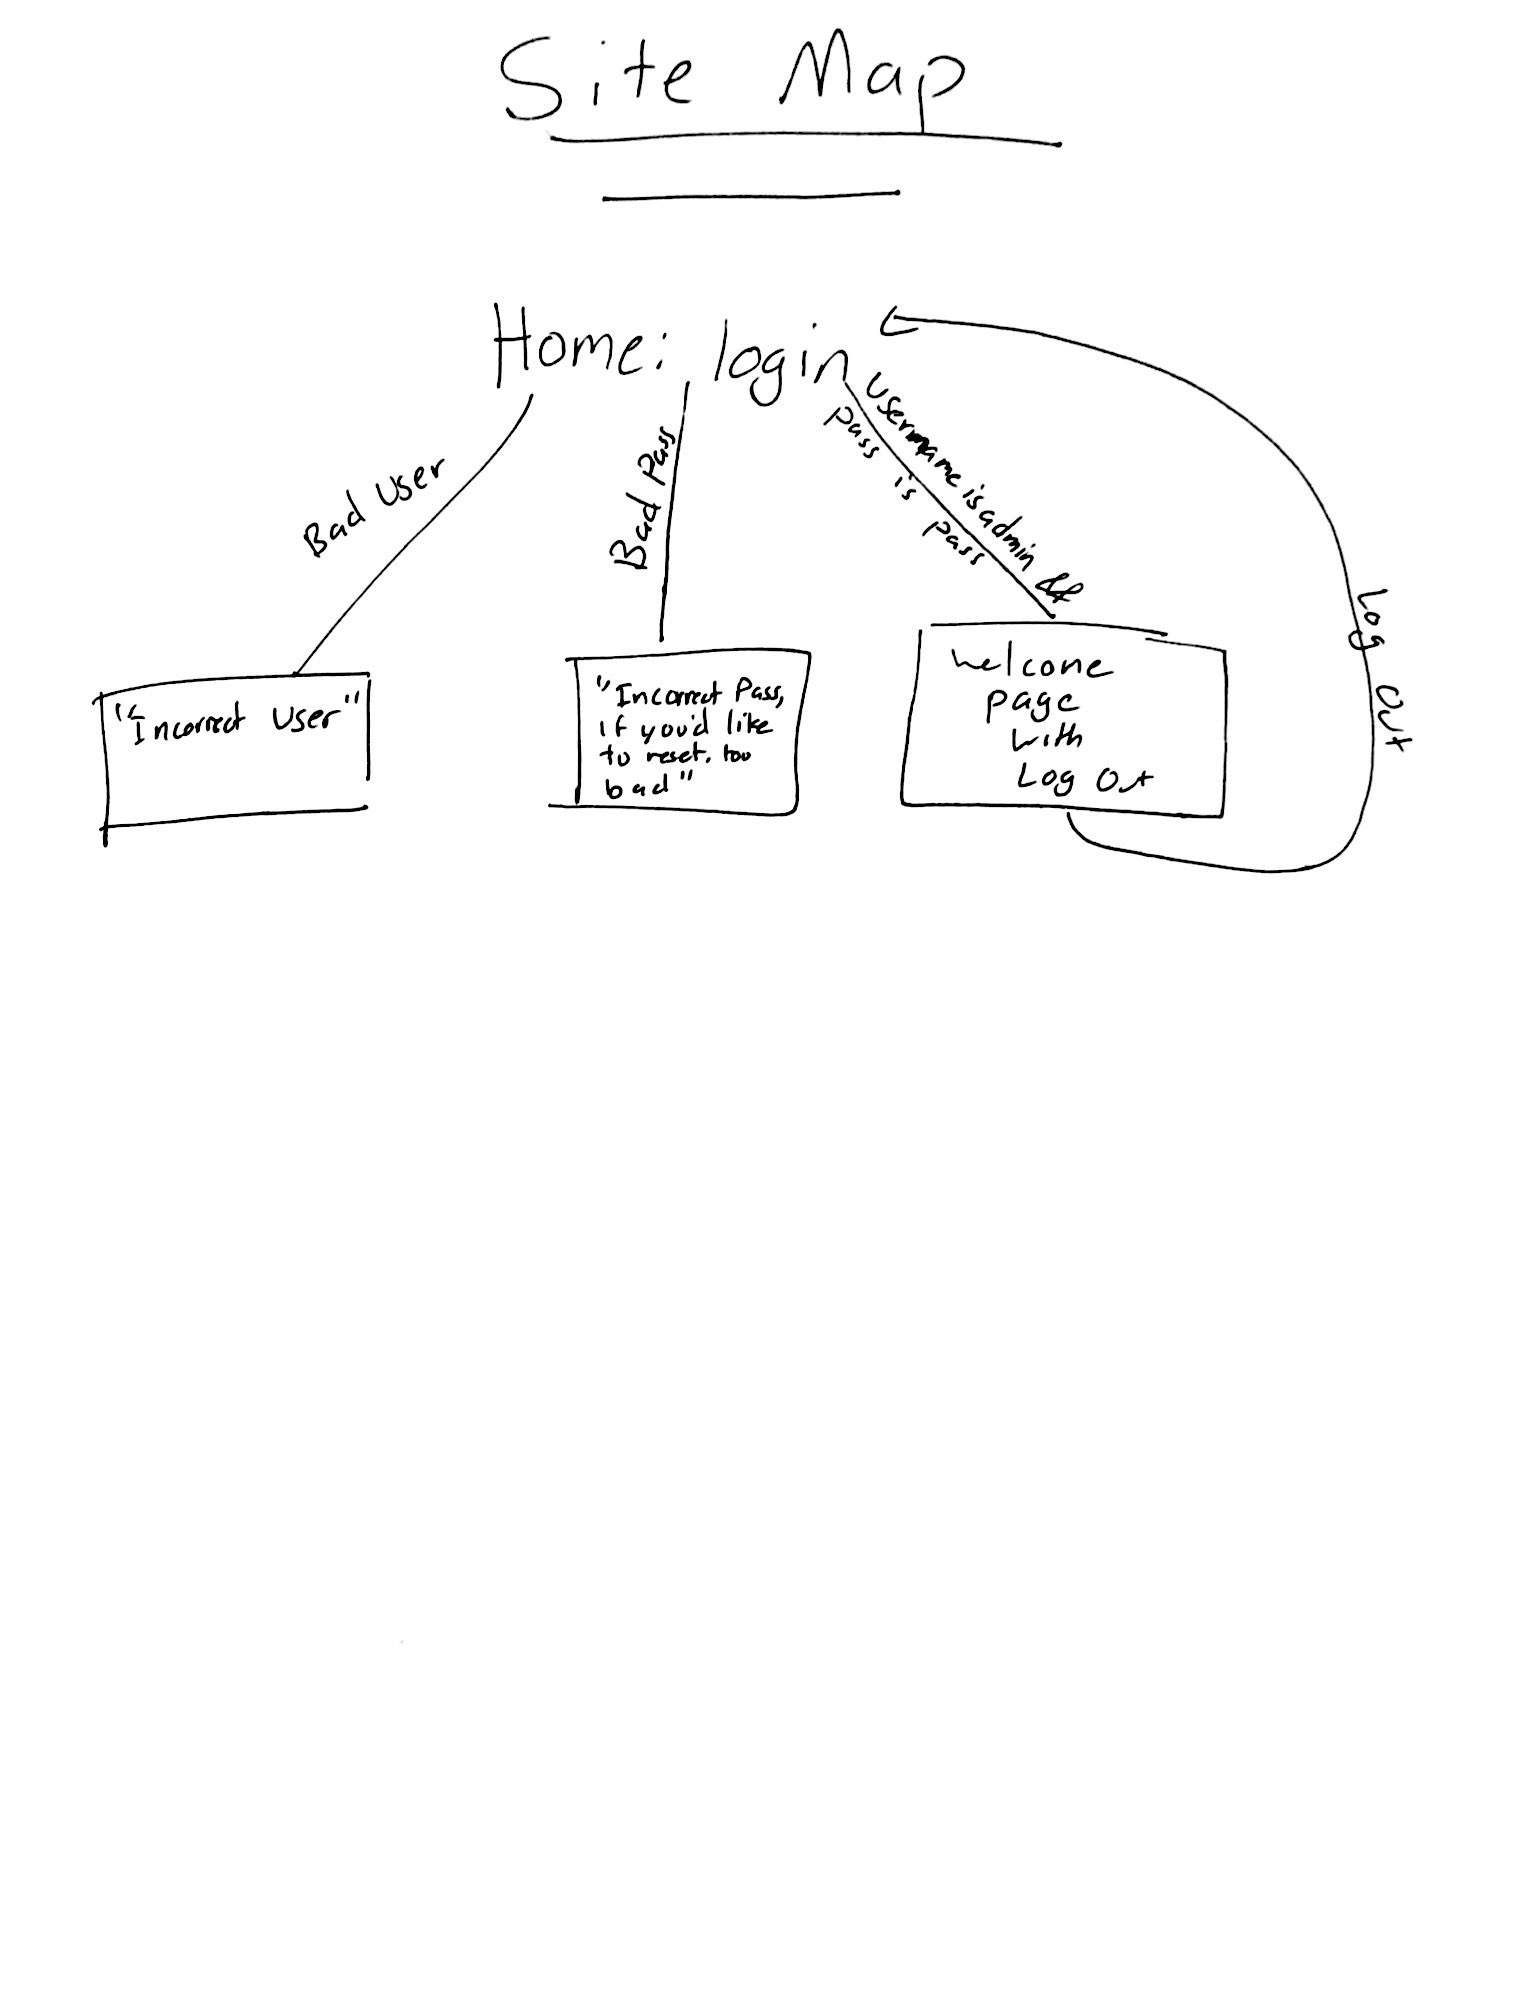 Site Map
Home: login
Bad User
Bad Pass
username is admin &&
pass is pass
Log Out
"Incorrect User"
"Incorrect Pass,
if you'd like
to reset, too
bad"
Welcome
page
with
Log Out